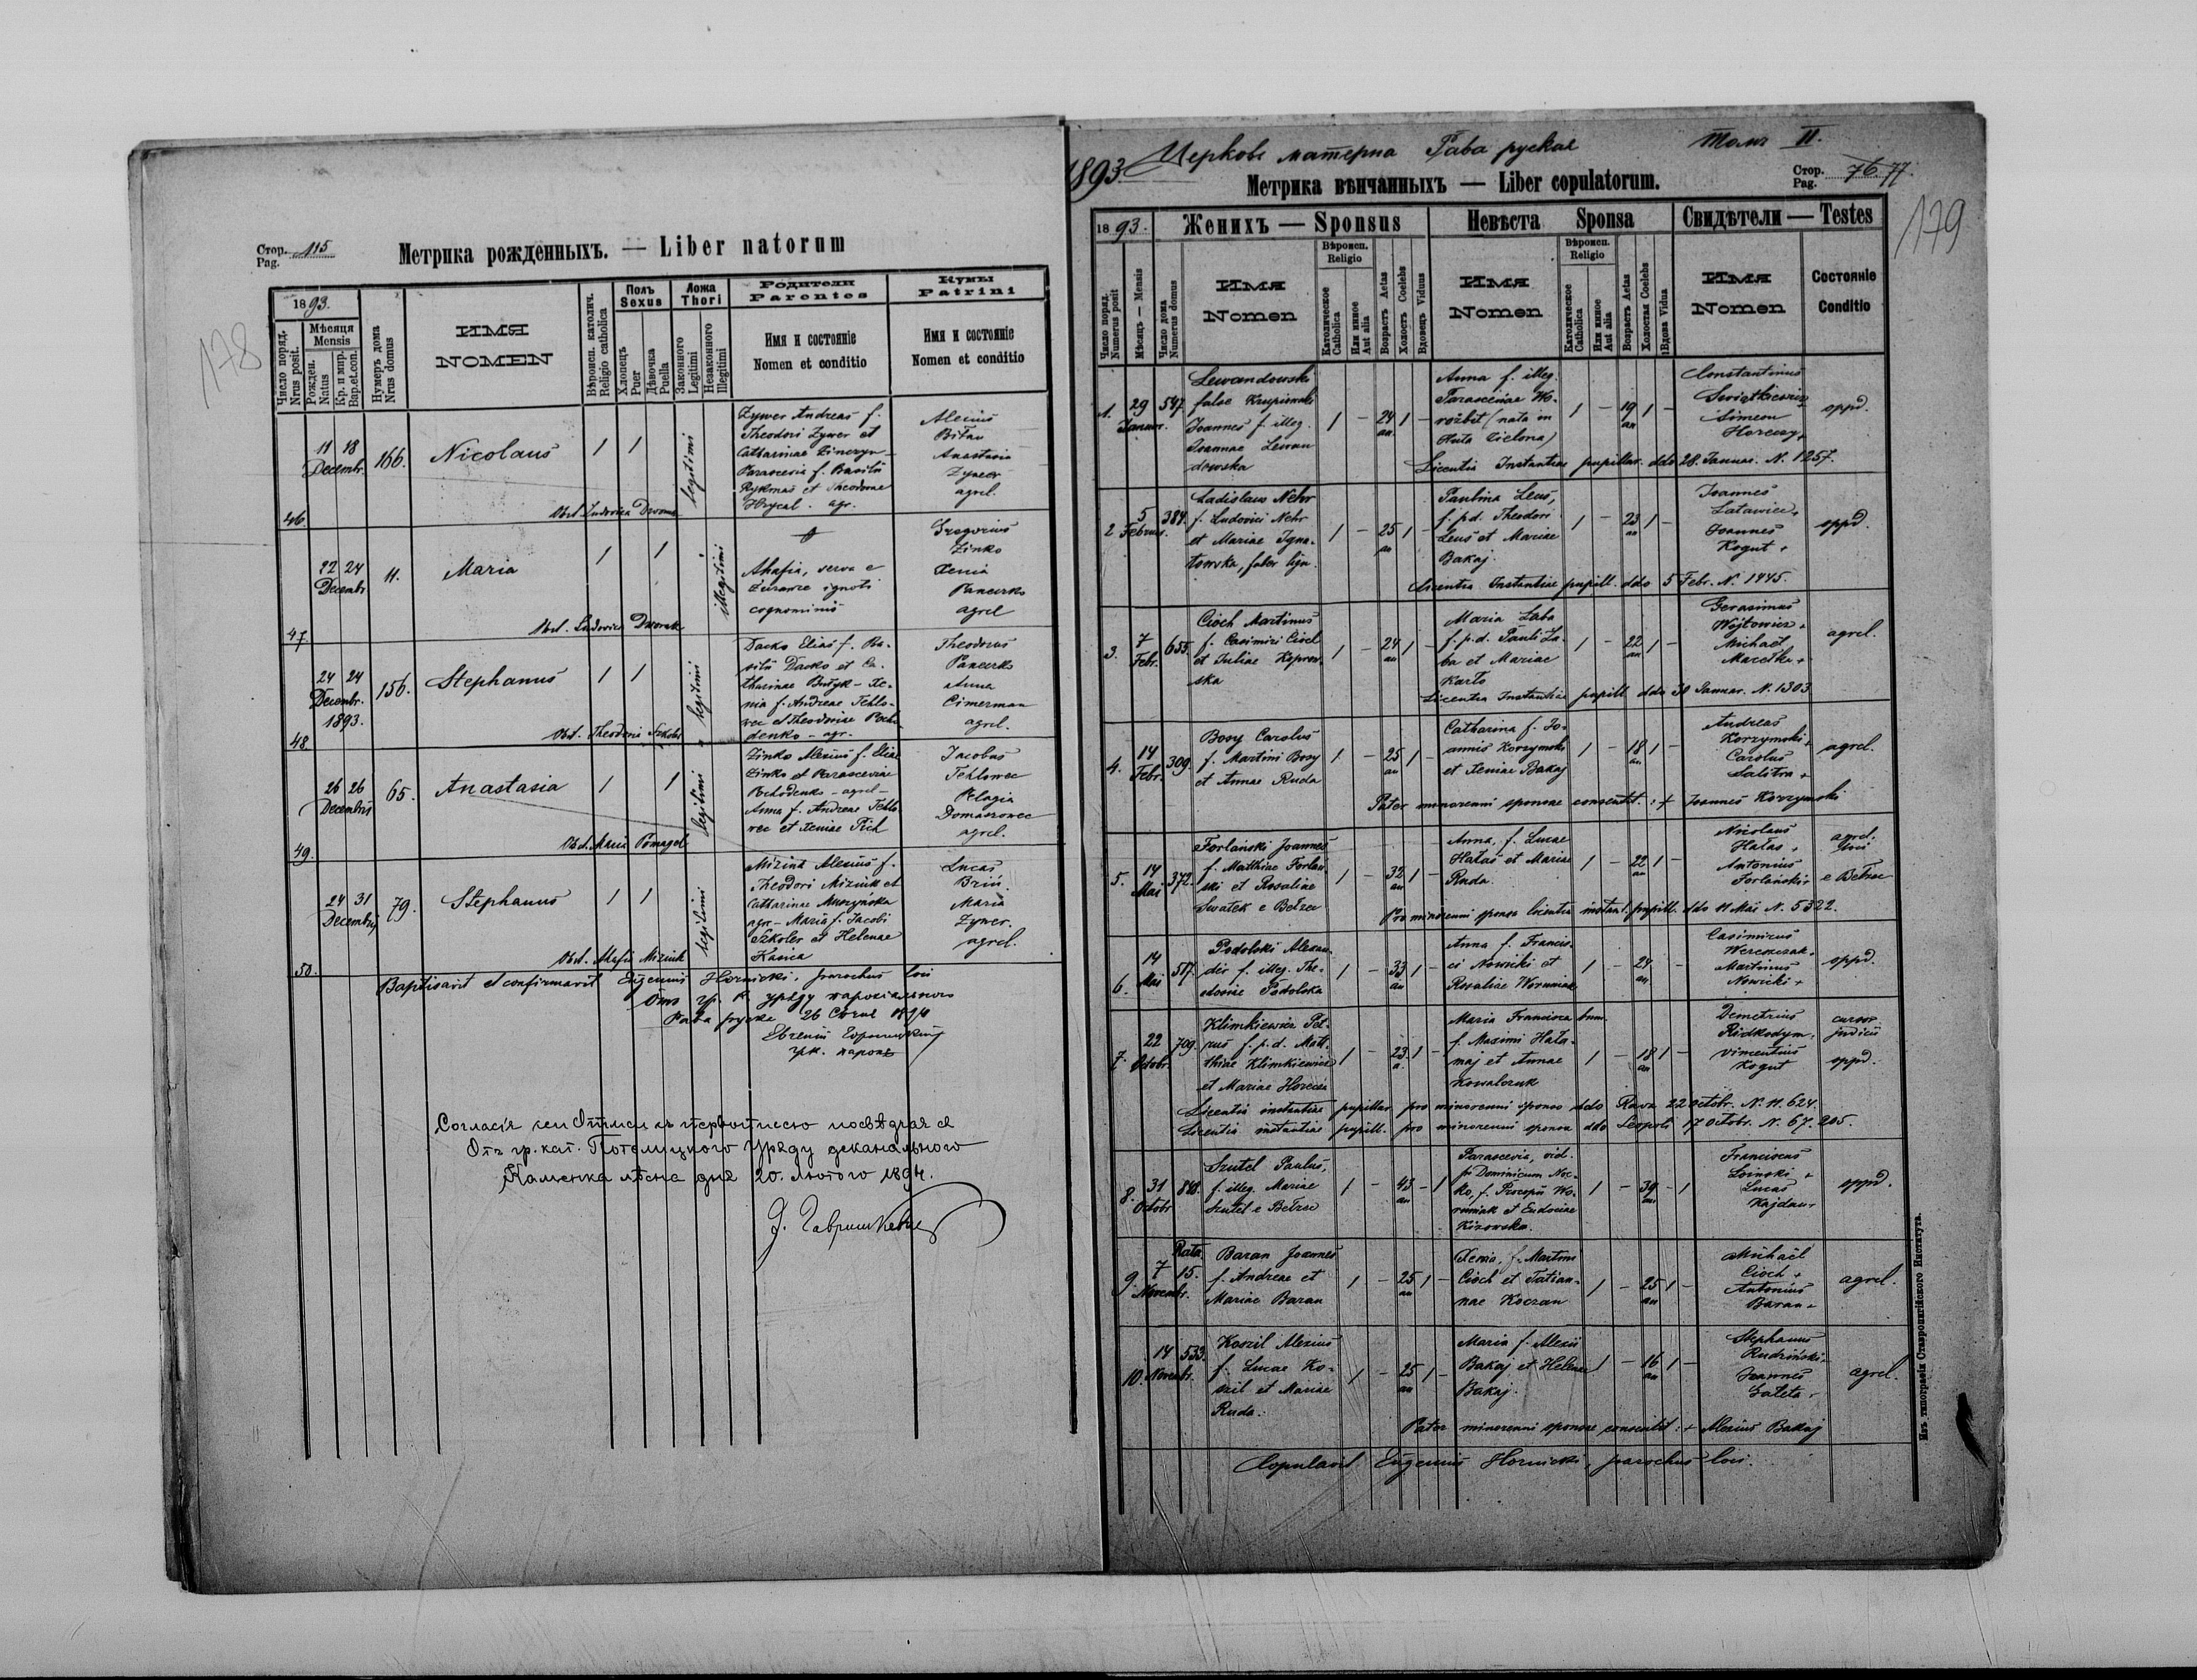 178
Стор. Pag. 115
Метрика рожденныхъ. — Liber natorum
1893.
Число поряд. Nrus posit.
Мѣсяця Mensis
Рожден. Natus
Кр. и мпр. Bap.et.con.
Нумеръ дома Nrus domus
ИМЯ
NOMEN
Вѣроисп. католич. Religio catholica
Полъ Sexus
Хлопецъ Puer
Дѣвочка Puella
Ложа Thori
Законного Legitimi
Незаконного Illegitimi
Родители
Parentes
Имя и состоянiе
Nomen et conditio
Кумы
Patrini
Имя и состоянiе
Nomen et conditio
46. 11 18 Decembr. 166. Nicolaus 1 1 legitimi
Zywer Andreas f.
Theodori Zywer et
Catharinae
Parascevia f. Basilii
et Theodorae
Hrycal. agr.
Alexius
Bilan
Anastasia
Zywer
agrel.
Obst. Ludovica Dworak
47. 22 24 Decembr. 11. Maria 1 1 illegitimi
Ahafia, serva e
ignoti
cognominis
Gregorius
Zinko
Xenia
Panczko
agrel
Obst. Ludovica Dworak
48. 24 24 Decembr. 1893. 156. Stephanus 1 1 legitimi
Dacko Elias f. Ba-
silii Dacko et Ca-
tharinae Butyk - Xe-
nia f. Andreae Tehlo-
wec et Theodosiae Pocho-
denko - agr.
Theodorus
Panczko
Anna
Cimerman
agrel.
Obst. Theodori Szkoler
49. 26 26 Decembris 65. Anastasia 1 1 legitimi
Zinko Alexius f. Eliae
Zinko et Parasceviae
Pochodenko - agrel -
Anna f. Andreae Tehlo-
wec et Xeniae Pich
Jacobus
Tehlowec
Pelagia
Domaszowec
agrel.
Obst. Maria Pomagel
50. 24 31 Decembris 79. Stephanus 1 1 legitimi
Miziuk Alexius f.
Theodori Miziuk et
Catharinae Muszyńska
agr - Maria f. Jacobi
Szkoler et Helenae
Kasica
Lucas
Briń
Maria
Zywer.
agrel.
Obst. Ahafia Miziuk
Baptisavit et confirmavit Eugenius Hornicki, parochus loci
Отъ гр. к. уряду парохіяльного
Рава руска 26 Січня 1894
Евгеній Горницкій
гр.к. парохъ
Согласіе сеи Отписи съ первописею посвѣдчае ся
Отъ гр. кат. Потелицкого Уряду деканального
Каменка лѣсна дня 20. лютого 1894.
179
1893. Церковь матерна Рава руская Томъ II.
Метрика вѣнчанныхъ — Liber copulatorum.
Стор. Pag. 76. 77.
1893. Женихъ — Sponsus Невѣста Sponsa Свидѣтели — Testes
Число поряд. Numerus posit
Мѣсяцъ — Mensis
Число дома Numerus domus
ИМЯ Nomen
Вѣроисп. Religio
Католическое Catholica
Или иное Aut alia
Возрастъ Aetas
Холостъ Coelebs
Вдовецъ Viduus
ИМЯ Nomen
Вѣроисп. Religio
Католическое Catholica
Или иное Aut alia
Возрастъ Aetas
Холостая Coelebs
Вдова Vidua
ИМЯ Nomen
Состоянiе Conditio
1. 29 Januar. 547.
Lewandowski
false Krupinski
Joannes f. illeg.
Joannae Lewan
dowska
1 - 24 an 1 -
Anna f. illeg.
Parasceviae Wo-
rożbit (nata in
Huta Zielona)
1 - 19 an 1 -
Constantinus
Swiątkiewicz +
Simeon
Horeczy +
oppd.
Licentia Instantiae pupillar. ddo 28. Januar. N. 1257.
2 5 Februar. 384.
Ladislaus Nehr
f. Ludovici Nehr
et Mariae Igna-
towska, faber lign.
1 - 25 an 1 -
Paulina Leus,
f. p.d. Theodori
Leus et Mariae
Bakaj.
1 - 23 an 1 -
Joannes
Latawiec +
Joannes
Kogut +
oppd.
Licentia Instantiae pupill. ddo 5 Febr. N. 1445.
3. 7 Febr. 655.
Cioch Martinus
f. Casimiri Cioch
et Juliae Koprow-
ska
1 - 24 an 1 -
Maria Łaba
f. p.d. Pauli Ła-
ba et Mariae
Karło
1 - 22 an 1 -
Gerasimus
Wojtowicz +
Michael
Macełko +
agrel.
Licentia Instantiae pupill. ddo 30 Januar. N. 1303
4. 14 Febr. 309.
Bosy Carolus
f. Martini Bosy
et Annae Ruda
1 - 25 an 1 -
Catharina f. Jo-
annis Korzynski
et Xeniae Bakaj
1 - 18 an 1 -
Andreas
Korzynski +
Carolus
Salitra +
agrel.
Pater minorenni sponsae consentit: + Joannes Korzynski
5. 14 Mai 372.
Forlański Joannes
f. Matthiae Forlan-
ski et Rosaliae
Swatek e Bełzec
1 - 32 an 1 -
Anna, f. Lucae
Hałas et Mariae
Ruda.
1 - 22 an 1 -
Nicolaus
Halas +
Antonius
Forlański +
agrel.
loci
e Bełzec
Pro minorenni sponsa licentia instant. pupill. ddo 11 Mai N. 5322.
6. 14 Mai 517.
Podolski Alexan-
der f. illeg. The-
odosiae Podolska
1 - 33 an 1 -
Anna f. Francis-
ci Nowicki et
Rosaliae Woruniak
1 - 24 an -
Casimirus
Martinus
Nowicki +
oppd.
7. 22 Octobr. 709.
Klimkiewicz Pet-
rus f. p.d. Mat-
thiae Klimkiewicz
et Mariae Horeczi
1 - 23 a. 1 -
Maria Francisca bnm.
f. Maximi Hala-
maj et Annae
Kowalczuk
1 - 18 an 1 -
Demetrius
Ridkodym,
Vincentius
Kogut
cursor
judicii
oppd.
Licentia instantiae pupillar. pro minorenni sponso ddo Rava 22 octobr. N. 11.624.
Licentia instantiae pupill. pro minorenni sponsa ddo Leopoli 17 octobr. N. 67.205.
8. 31 Octobr
Szutel Paulus,
f. illeg. Mariae
Szutel e Bełzec
1 - 43 an - 1
Parascevia, vid.
p. Dominicum Noc-
ko, f. Procopii Wo-
runiak et Eudociae
Kizowska.
1 - 39 an - 1
Franciscus
Łoinski +
Lucas
Kajdan +
oppd.
9. 7 Novembr. Rata 15.
Baran Joannes
f. Andreae et
Mariae Baran
1 - 25 an 1 -
Xenia, f. Martini
Cioch et Tatian-
nae Koczan
1 - 25 an 1 -
Michaël
Cioch +
Antonius
Baran +
agrel.
10. 14 Novembr. 533.
Koszil Alexius
f. Lucae Ko-
szil et Mariae
Ruda.
1 - 25 an 1 -
Maria f. Alexii
Bakaj et Helenae
Bakaj.
1 - 16 an 1 -
Stephanus
Rudziński +
Joannes
Galeta +
agrel.
Pater minorenni sponsae consentit: + Alexius Bakaj
Copulavit Eugenius Hornicki, parochus loci.
Изъ типографiи Ставропигiйского Института.